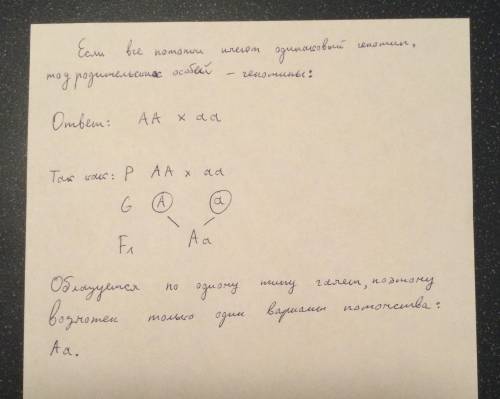 Если все потомки имеют одинаковый генотип,
то у родительских особей – генотипы:
Ответ: АА × аа
Так как: Р АА × аа
G А а
F₁ Аа
Образуется по одному типу гамет, поэтому
возможен только один вариант потомства:
Аа.